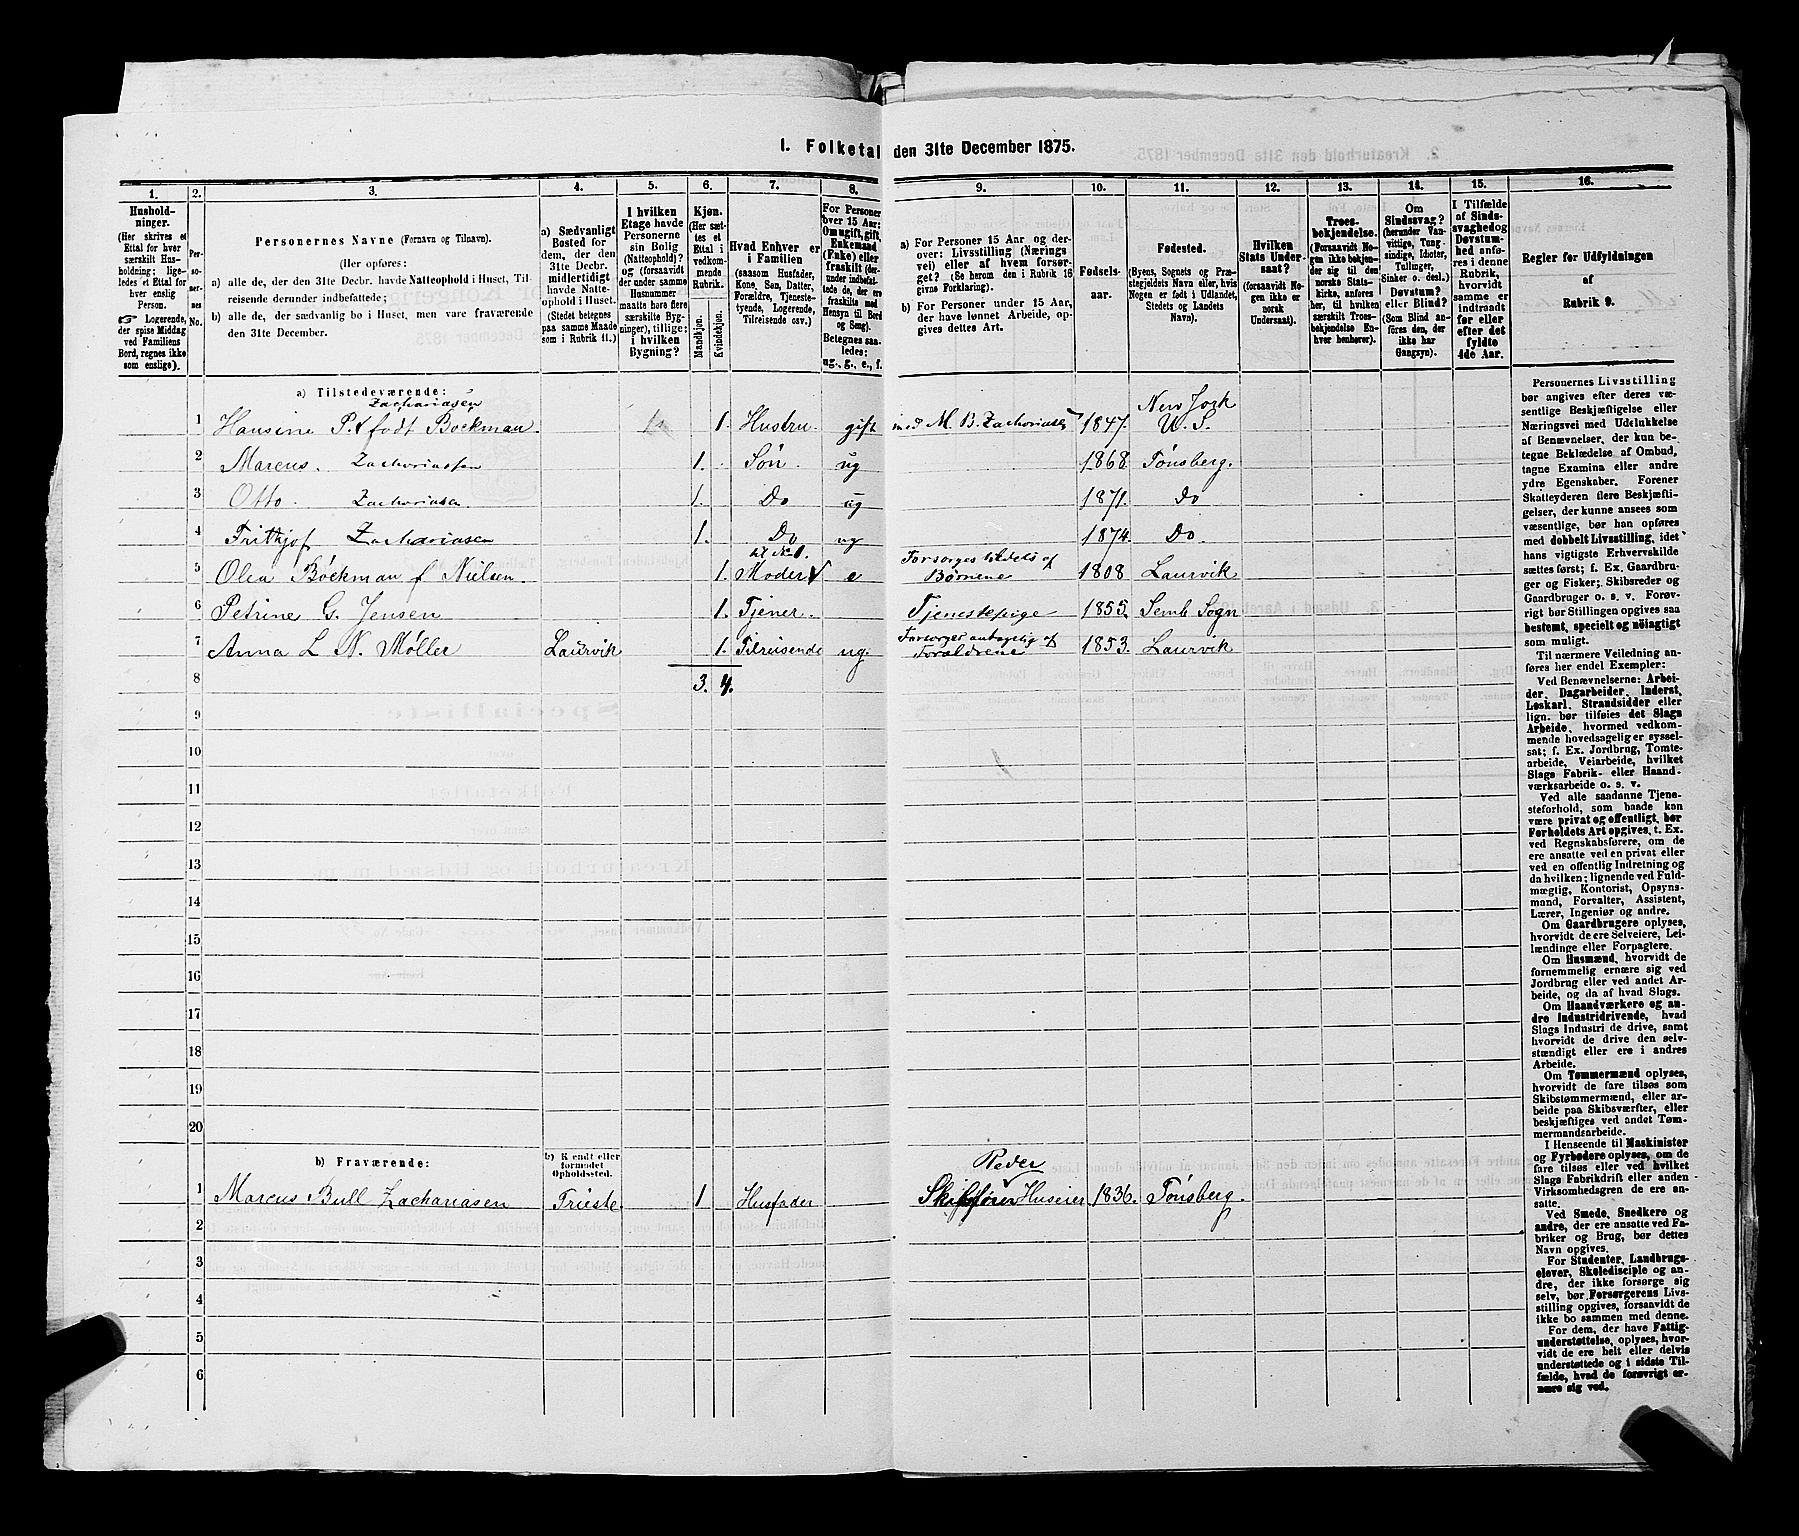 1. Folketal den 31te December 1875.
1.
2.
3.
4.
5.
6.
7.
8.
9.
10.
11.
12.
13.
14.
15.
16.
Husholdninger.
(Her skrives et Ettal for hver særskilt Husholdning; ligeledes et Ettal for hver enslig Person.
☞ Logerende, der spise Middag ved Familiens Bord, regnes ikke som enslige).
Personernes No.
Personernes Navne (Fornavn og Tilnavn).
(Her opføres:
a) alle de, der den 31te Decbr. havde Natteophold i Huset, Tilreisende derunder indbefattede;
b) alle de, der sædvanlig bo i Huset, men vare fraværende den 31te December.
a) Sædvanligt Bosted for dem, der den 31te Decbr. midlertidigt havde Natteophold i Huset.
(Stedet betegnes paa samme Maade som i Rubrik 11.)
I hvilken Etage havde Personerne sin Bolig (Natteophold)? og (forsaavidt der under samme Husnummer maatte høre flere særskilte Bygninger), tillige: i hvilken Bygning?
Kjøn.
(Her sættes et Ettal i vedkommende Rubrik.
Mandkjøn.
Kvindekjøn.
Hvad Enhver er i Familien
(saasom Husfader, Kone, Søn, Datter, Forældre, Tjenestetyende, Logerende, Tilreisende osv.)
For Personer over 15 Aar: Om ugift, gift, Enkemand (Enke) eller fraskilt (derunder indbefattede de, der ere fraskilte med Hensyn til Bord og Seng).
Betegnes saaledes: ug., g., e., f.
a) For Personer 15 Aar og derover: Livsstilling (Næringsvei) eller af hvem forsørget? (Se herom den i Rubrik 16 givne Forklaring).
b) For Personer under 15 Aar, der have lønnet Arbeide, opgives dettes Art.
Fødselsaar.
Fødested.
(Byens, Sognets og Præstegjeldets Navn eller, hvis Nogen er født i Udlandet, Stedets og Landets Navn).
Hvilken Stats Undersaat?
(forsaavidt Nogen ikke er norsk Undersaat).
Troesbekjendelse.
(Forsaavidt Nogen ikke bekjender sig til den norske Statskirke, anføres her, til hvilken særskilt Troesbekjendelse Enhver henhører).
Om Sindssvag? (herunder Vanvittige, Tungsindige, Idioter, Tullinger, Sinker o. desl.) Døvstum? eller Blind?
(Som Blind anføres den, der ikke har Gangsyn).
I Tilfælde af Sindssvaghed og Døvstumhed anføres i denne Rubrik, hvorvidt samme er indtraadt før eller efter det fyldte 4de Aar.
Regler for Udfyldningen
af
Rubrik 9.
a) Tilstedeværende:
Zachariasen New York
1 Hansine P. f født Bockman. 1. Hustru. gift med M. B. Zachariasen 1847. U. S.
2 Marcus. Zachariasen 1. Søn. ug 1868. Tönsberg.
3 Otto. Zachariasen 1. Do ug 1871. Do
4 Frithjof Zachariasen 1. Do ug 1874. Do.
5 Olea Böckman f Nielsen. 1. Moder e Forsørges af Børnene 1808 Laurvik
6 Petrine G. Jensen 1. Tjener. Tjenestepige 1855. Semb Sogn
7 Anna L N. Møller Laurvik 1. Tilreisende ug. Forsørges af Forældrene 1853. Laurvik
8 3. 4.
9
10
11
12
13
14
15
16
17
18
19
20
b) Fraværende:
b) Kjendt eller formodet Opholdssted.
Reder
1 Marcus Bull Zachariasen Trieste 1 Husfader Skibsfører Huseier 1836. Tönsberg.
2
3
4
5
6
Personernes Livsstilling bør angives efter deres væsentlige Beskjæftigelse eller Næringsvei med Udelukkelse af Benævnelser, der kun betegne Beklædelse af Ombud, tagne Examina eller andre ydre Egenskaber. Forener Skatteyderen flere Beskjæftigelser, der kunne ansees som væsentlige, bør han opføres med dobbelt Livsstilling, idet hans vigtigste Erhvervskilde sættes først; f. Ex. Gaardbruger og Fisker; Skibsreder og Gaardbruger o. s. v. Forøvrigt bør Stillingen opgives saa bestemt, specielt og nöiagtigt som muligt.
Til nærmere Veiledning anføres her endel Exempler:
Ved Benævnelserne: Arbeider, Dagarbeider, Inderst, Løskarl, Strandsidder eller lign. bør tilføies det Slags Arbeide, hvormed vedkommende hovedsagelig er sysselsat; f. Ex. Jordbrug, Tomtearbeide, Veiarbeide, hvilket Slags Fabrik- eller Haandværksarbeide o. s. v.
Ved alle saadanne Tjenesteforhold, som baade kan være privat og offentligt, bør Forholdets Art opgives, t. Ex. ved Regnskabsførere, om de ere ansatte ved en privat eller ved en offentlig Indretning og da hvilken; lignende ved Fuldmægtig, Kontorist, Opsynsmand, Forvalter, Assistent, Lærer, Ingeniør og andre.
Om Gaardbrugere oplyses, hvorvidt de ere Selveiere, Leilændinge eller Forpagtere.
Om Husmænd, hvorvidt de fornemmelig ernære sig ved Jordbrug eller ved andet Arbeide, og da af hvad Slags.
Om Haandværkere og andre Industridrivende, hvad Slags Industri de drive, samt hvorvidt de drive den selvstændigt eller ere i andres Arbeide.
Om Tømmermænd oplyses, hvorvidt de fare tilsøs som Skibstømmermænd, eller arbeide paa Skibsværfter, eller beskjæftiges ved andet Tømmermandsarbeide.
I Henseende til Maskinister og Fyrbødere oplyses, om de fare tilsøs eller ved hvilket Slags Fabrikdrift eller anden Virksomhedsgren de ere ansatte.
Ved Smede, Snedkere og andre, der ere ansatte ved Fabriker og Brug, bør dettes Navn opgives.
For Studenter, Landbrugselever, Skoledisciple og andre, der ikke forsørge sig selv, bør Forsørgerens Livsstilling opgives, forsaavidt de ikke bo sammen med denne.
For dem, der have Fattigunderstøttelse, oplyses, hvorvidt de ere helt eller delvis understøttede og i sidste Tilfælde, hvad de forøvrigt ernære sig ved.